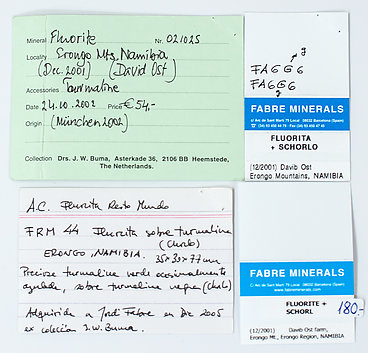 Mineral Fluorite Nr. 021025
Locality Erongo Mts, Namibia
(Dec. 2001) (David Ost)
Accessories Tourmaline
Date 24.10.2002 Price € 54,-
Origin (München 2002)
Collection Drs. J. W. Buma, Asterkade 36, 2106 BB Heemstede,
The Netherlands.
FA6G6
FA6G6
FABRE MINERALS
c/ Arc de Sant Martí 79 Local 08032 Barcelona (Spain)
FLUORITA
+ SCHORLO
(12/2001) Davib Ost
Erongo Mountains, NAMIBIA
A.C. Fluorita Resto Mundo
FRM 44 Fluorita sobre turmalina
(chorlo)
ERONGO, NAMIBIA. 35x30x77 mm
Preciosa turmalina verde ocasionalmente
sobre turmalina negra (chorlo)
Adquirida a Jordi Fabre en Dic 2005
ex colección J.W. Buma.
FABRE MINERALS
C/ Arc de Sant Martí 79 Local 08032 Barcelona (Spain)
www.fabreminerals.com
FLUORITE +
SCHORL
180.-
(12/2001) Davib Ost farm,
Erongo Mt., Erongo Region, NAMIBIA